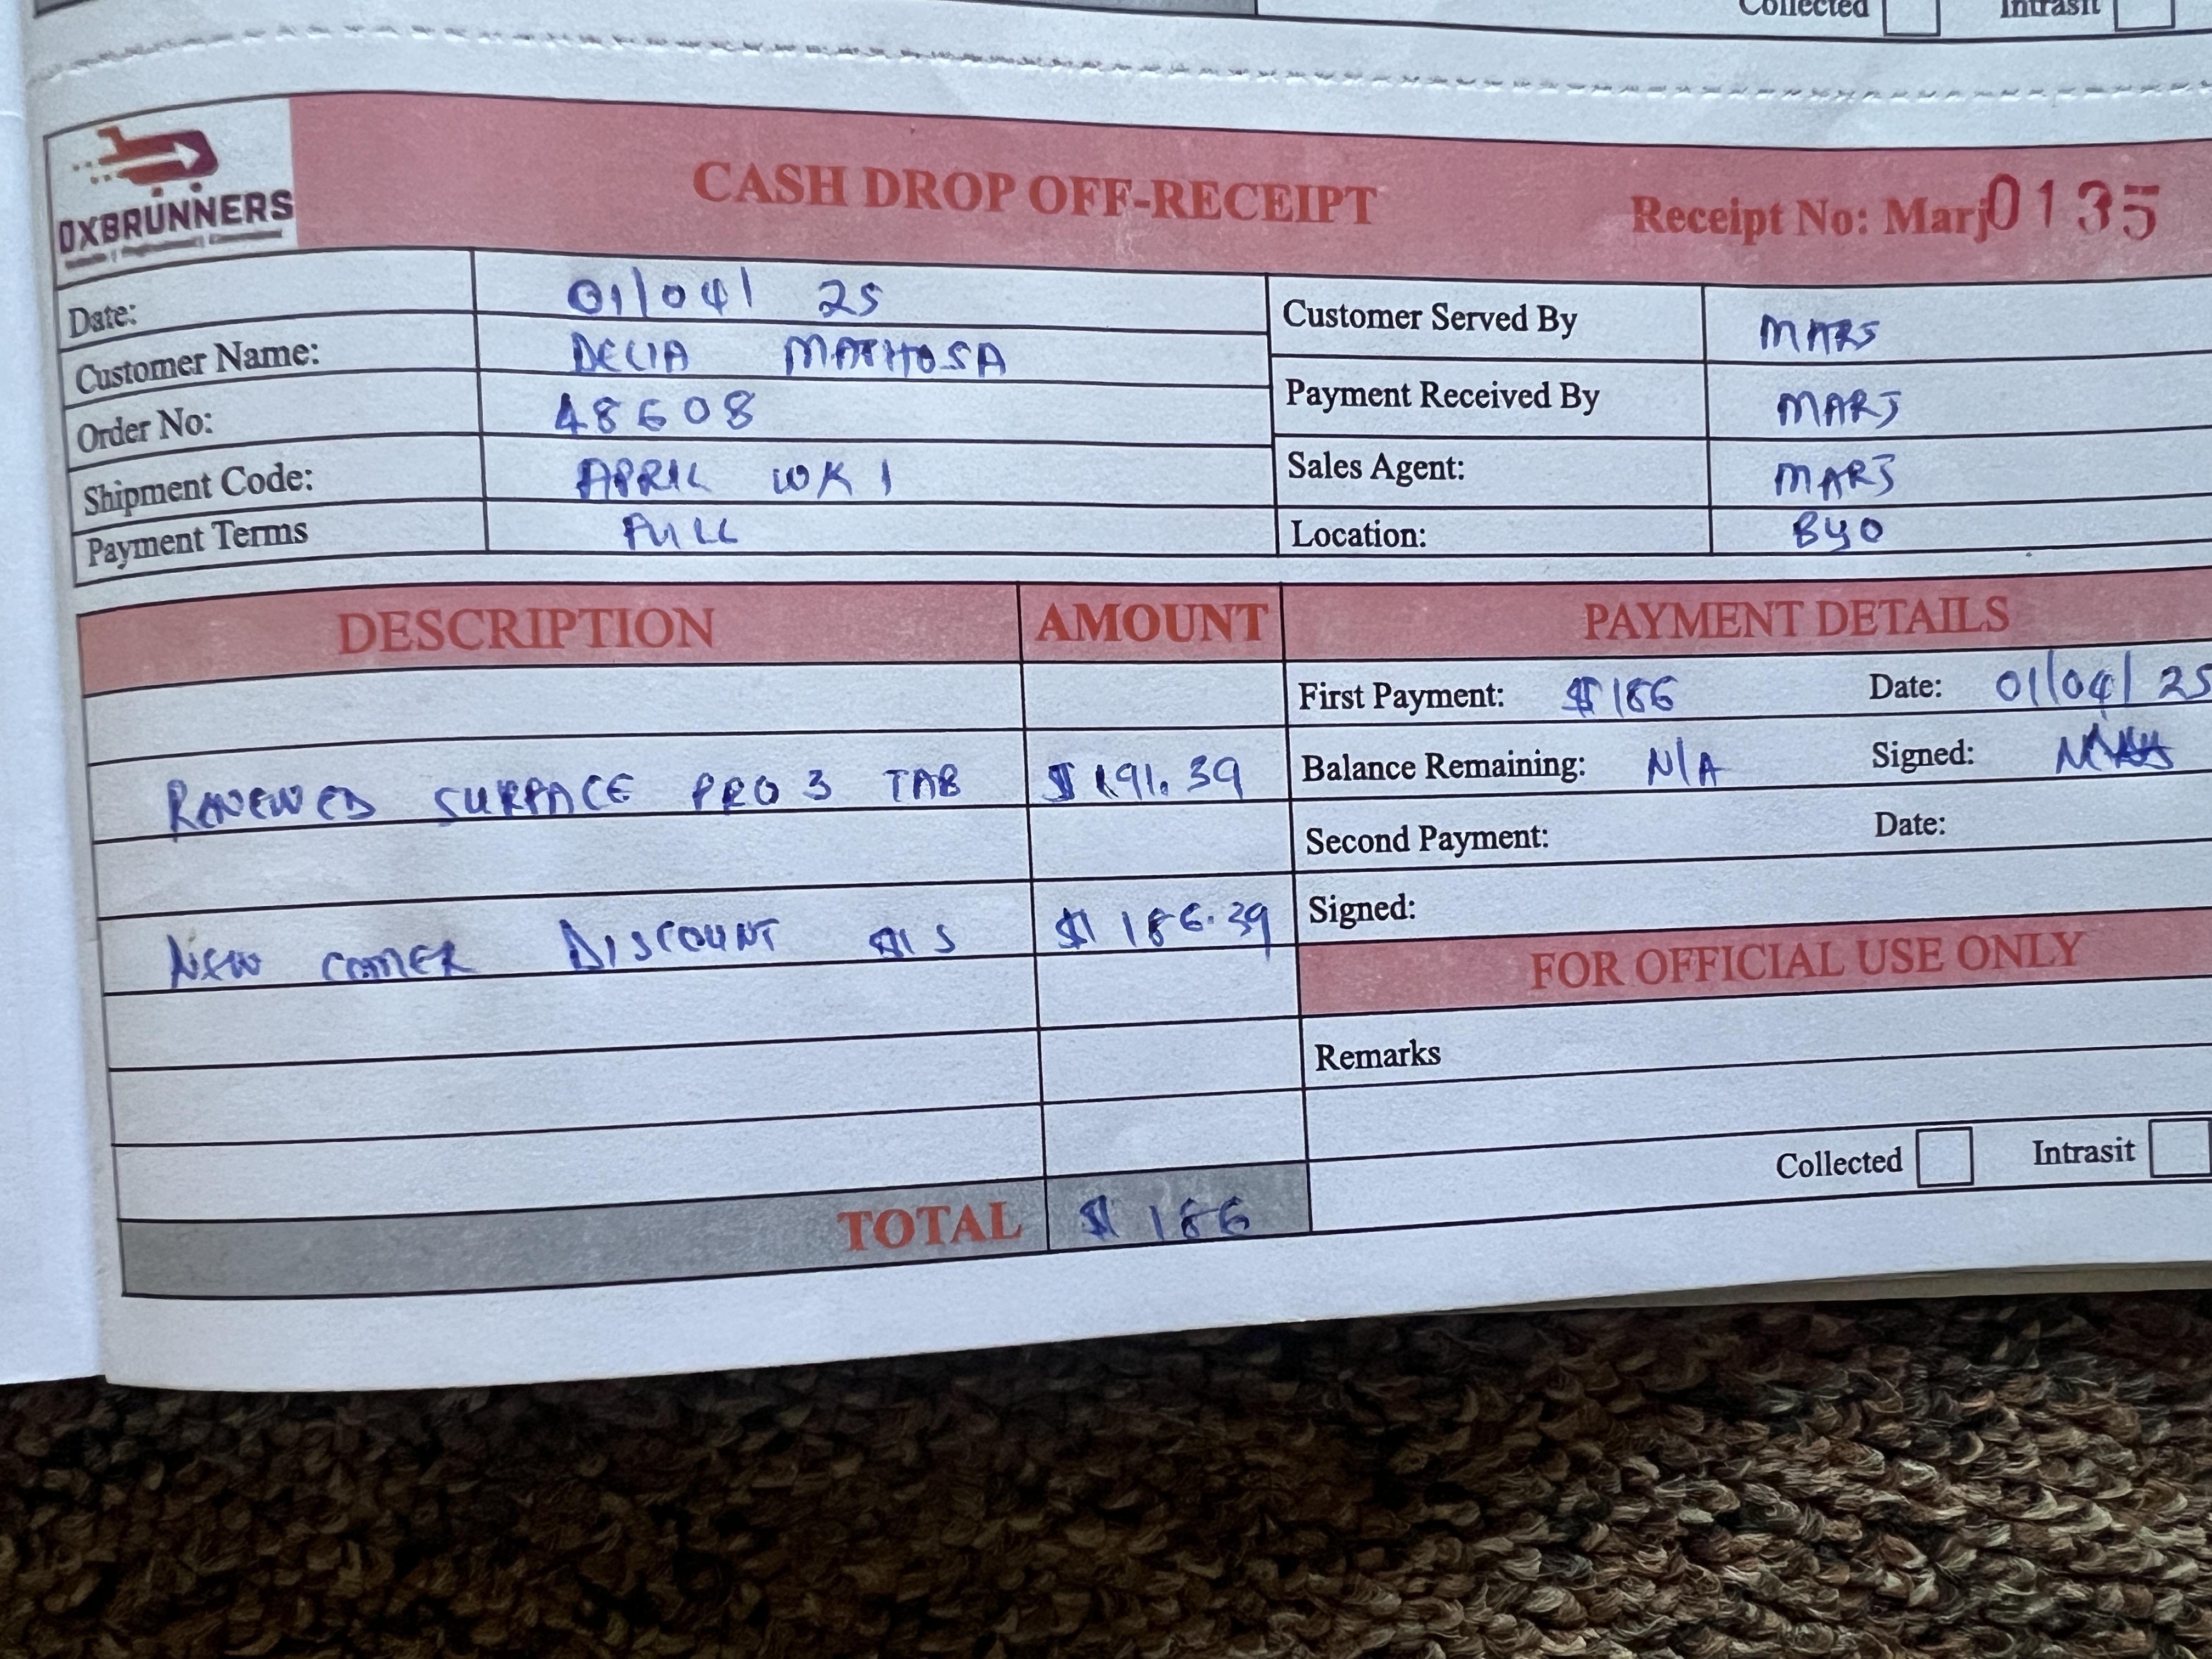 Collected Intrasit
OXBRUNNERS
CASH DROP OFF-RECEIPT
Receipt No: Marj0135
Date: 01/04/25
Customer Name: DELIA MATHOSA
Order No: 48608
Shipment Code: APRIL WK 1
Payment Terms FULL
Customer Served By MARJ
Payment Received By MARJ
Sales Agent: MARJ
Location: BYO
DESCRIPTION AMOUNT
RENEWED SURFACE PRO 3 TAB $191.39
NEW COMER DISCOUNT $186.39
TOTAL $186
PAYMENT DETAILS
First Payment: $186 Date: 01/04/25
Balance Remaining: N/A Signed:
Second Payment: Date:
Signed:
FOR OFFICIAL USE ONLY
Remarks
Collected Intrasit